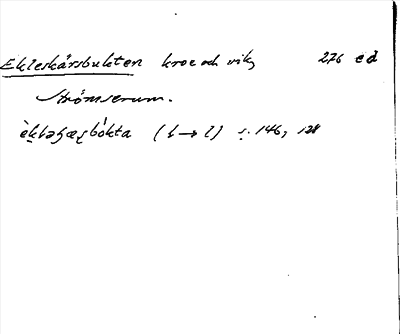 Ekleskärsbukten kroe och vik, 276 ed
Strömserum.
èkləʂæɽbókta (ɩ → l) s. 146, 128